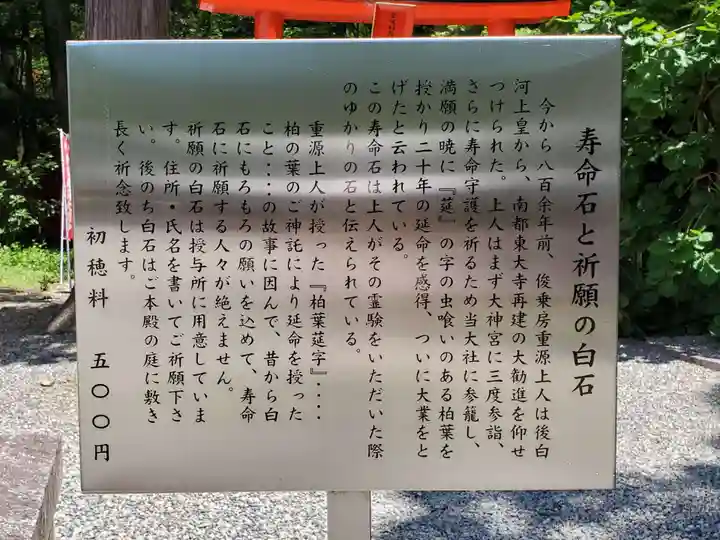 寿命石と祈願の白石
今から八百余年前、俊乗房重源上人は後白
河上皇から、南都東大寺再建の大勧進を仰せ
つけられた。上人はまず大神宮に三度参詣、
さらに寿命守護を祈るため当大社に参籠し、
満願の暁に『莚』の字の虫喰いのある柏葉を
授かり二十年の延命を感得、ついに大業をと
げたと云われている。
この寿命石は上人がその霊験をいただいた際
のゆかりの石と伝えられている。
重源上人が授った『柏葉莚字』・・・
柏の葉のご神託により延命を授った
こと・・・の故事に因んで、昔から白
石にもろもろの願いを込めて、寿命
石に祈願する人々が絶えません。
祈願の白石は授与所に用意していま
す。住所・氏名を書いてご祈願下さ
い。後のち白石はご本殿の庭に敷き
長く祈念致します。
初穂料 五〇〇円